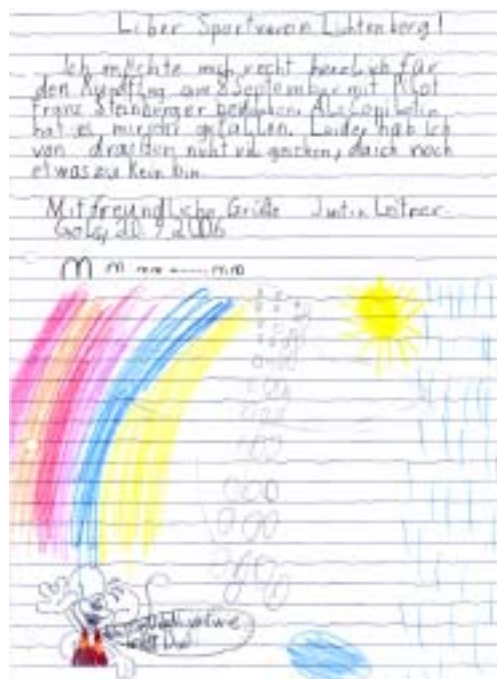 Liber Sportverein Lichtenberg!
Ich möchte mich recht herzlich für
den Rundflug am 8 September mit Pilot
Franz Steinberger bedanken. Als Copilotin
hat es mir sehr gefallen. Leider hab ich
von draußen nicht viel gesehen, da ich noch
etwas zu klein bin
Mit freundliche Grüße Justin Leitner
20.9.2006